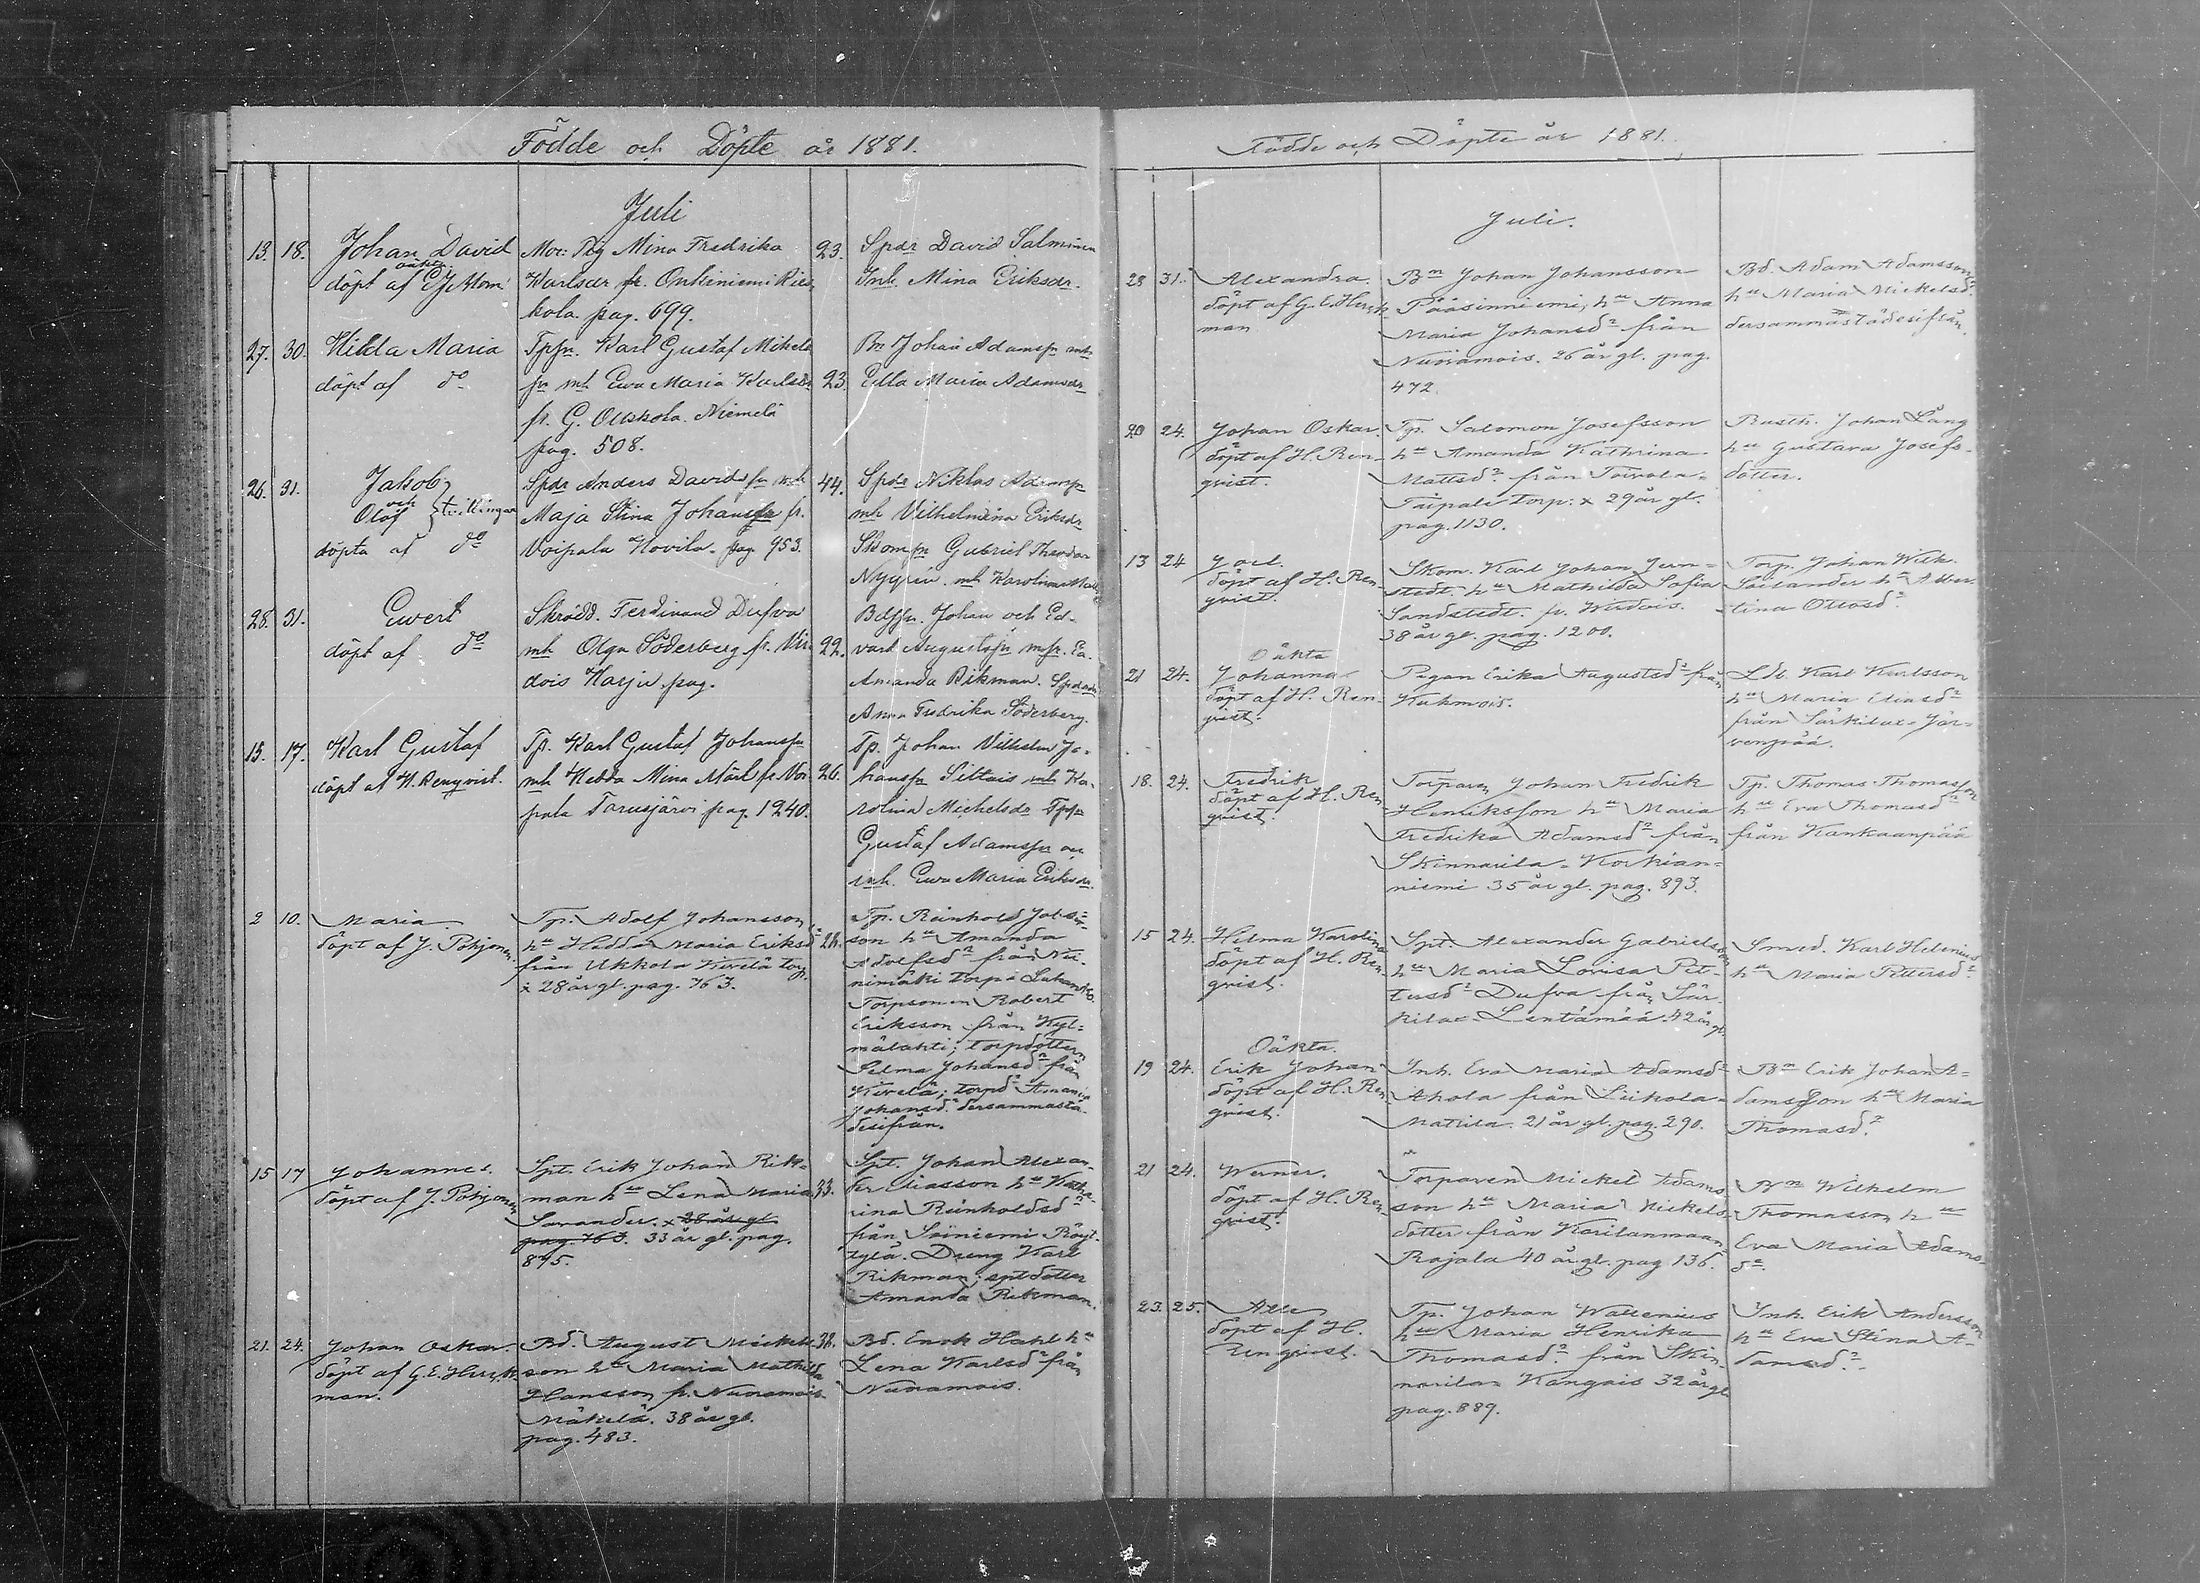 Födde och Döpte år 1881.
Juli
13. 18. Johan David
oäkta
döpt af
Mor: Pig Mina Fredrika
Karlsdr fr. Onkiniemi
kola pag. 699.
23. Spdr David Salminen
Inh. Mina Eriksdr.
27. 30. Hilda Maria
döpt af do
Tpsn. Karl Gustaf Mikels
sn mh Ewa Maria Karlsdr
fr. G. Niemelä
pag. 508.
23.
Bn Johan Adamsn mh
Ulla Maria Adamsdr
26. 31. Jakob
och
Olof } tvillingar
döpta af do
Spdr Anders Davidssn mh
Maja Stina Johansdr fr.
Voipala Hovila. pag 953.
44. Spdr Niklas Adamsn
mh Vilhelmina Eriksdr
Skomsn Gabriel Theodor
Nygrén mh Karolina
28. 31. Ewert
döpt af do
Skrädd. Ferdinand Dufva
mh Olga Söderberg fr. Vir
dois Harju pag.
22.
Bdssn. Johan och Ed-
vart Augustsn
Amanda Rikman. Spdr
Anna Fredrika Söderberg.
15. 17. Karl Gustaf
döpt af H. Renqvist.
Tp. Karl Gustaf Johanssn
mh Hedda Mina fr. Voi
pala Tarusjärvi pag. 1240.
26.
Tp. Johan Vilhelm Jo-
hanssn mh Ka-
rolina Michelsdr Tpsn
Gustaf Adamssn
mh. Ewa Maria Eriksdr.
2 10. Maria
döpt af J. Pohjonen.
Tp. Adolf Johansson
hu Hedda Maria Eriksdr
från Ukkola Kivelä torp
x 28 år gl. pag. 763.
28.
Tp. Reinhold
son hu Amanda
Adolfsdr från Nii-
nimäki torp
Torpsonen Robert
Eriksson från Kyl-
mälahti; torpdottern
Selma Johansdr från
Kivelä; torpdr Amanda
Johansdr dersammastä-
desifrån.
15 17 Johannes.
döpt af J. Pohjonen
Spt. Erik Johan Rik-
man hu Lena Maria
Savander. x 28 år gl.
pag. 763. 33 år gl. pag.
895.
33.
Spt. Johan Alexan-
der Eliasson hu Kata-
rina Reinholdsdr
från Säiniemi Röyt-
tylä. Dreng Karl
Rikman; sptdotter
Amanda Rikman.
21. 24. Johan Oskar.
döpt af G. E. Hersk-
man.
Bd. August Mickels
son hu Maria Mathilda
Hansson fr. Nunamois
Mäkelä. 38 år gl.
pag. 483.
38.
Bd. Enok Hahl hu
Lena Karlsdr från
Nunamois.
Födde och Döpte år 1881.
Juli.
28 31. Alexandra.
döpt af G. E. Hersk
man
Bn Johan Johansson
Pääsinniemi, hu Anna
Maria Johansdr från
Nunamois. 26 år gl. pag.
472.
Bd. Adam Adamsson
hu Maria Mickelsdr
dersammastädesifrån.
20 24. Johan Oskar.
döpt af H. Ren-
qvist.
Tp. Salomon Josefsson
hu Amanda Kathrina
Mattsdr från Toivola-
Taipale torp. x 29 år gl.
pag. 1130.
Rusth. Johan Lång
hu Gustava Josefs-
dotter.
13 24 Joel.
döpt af H. Ren
qvist.
Skom. Karl Johan Jern-
stedt hu Mathilda Sofia
Sandstedt. fr. Wirdois.
38 år gl. pag. 1200.
Torp. Johan Wilh.
Sailander hu Alber-
tina Ottosdr
Oäkta
21 24. Johanna
döpt af H. Ren-
qvist.
Pigan Erika Augustsdr från
Kuhmois.
Ldb. Karl Karlsson
hu Maria Eliasdr
från Särkilax-Jär-
venpää.
18. 24. Fredrik
döpt af H. Ren
qvist.
Torparen Johan Fredrik
Henriksson hu Maria
Fredrika Adamsdr från
Skinnarila-Korkian-
niemi 35 år gl. pag. 893.
Tp. Thomas Thomasson
hu Eva Thomasdr
från Kankaanpää
15 24. Hilma Karolina
döpt af H. Ren-
qvist.
Spt. Alexander Gabrielsson
hu Maria Lovisa Pet-
tersdr Dufva från Sär-
kilax-Lentämää. 42 år gl.
Smed. Karl Helenius
hu Maria Pettersdr
Oäkta.
19 24. Erik Johan
döpt af H. Ren
qvist.
Inh. Eva Maria Adamsdr
Ahola från Liikola-
Mattila. 21 år gl. pag. 290.
Bn Erik Johan A-
damsson hu Maria
Thomasdr.
21 24. Werner.
döpt af H. Ren-
qvist.
Torparen Mickel Adams-
son hu Maria Mickels-
dotter från Karilanmaa-
Rajala 40 år gl. pag 136.
Bn Wilhelm
Thomasson hu
Eva Maria Adams-
dr.
23. 25.
döpt af H.
Renqvist.
Tp. Johan Wallenius
hu Maria Henrika
Thomasdr. från Skin-
narila-Kangais 32 år gl
pag. 889.
Inh. Erik Andersson
hu Eva Stina A-
damsdr.